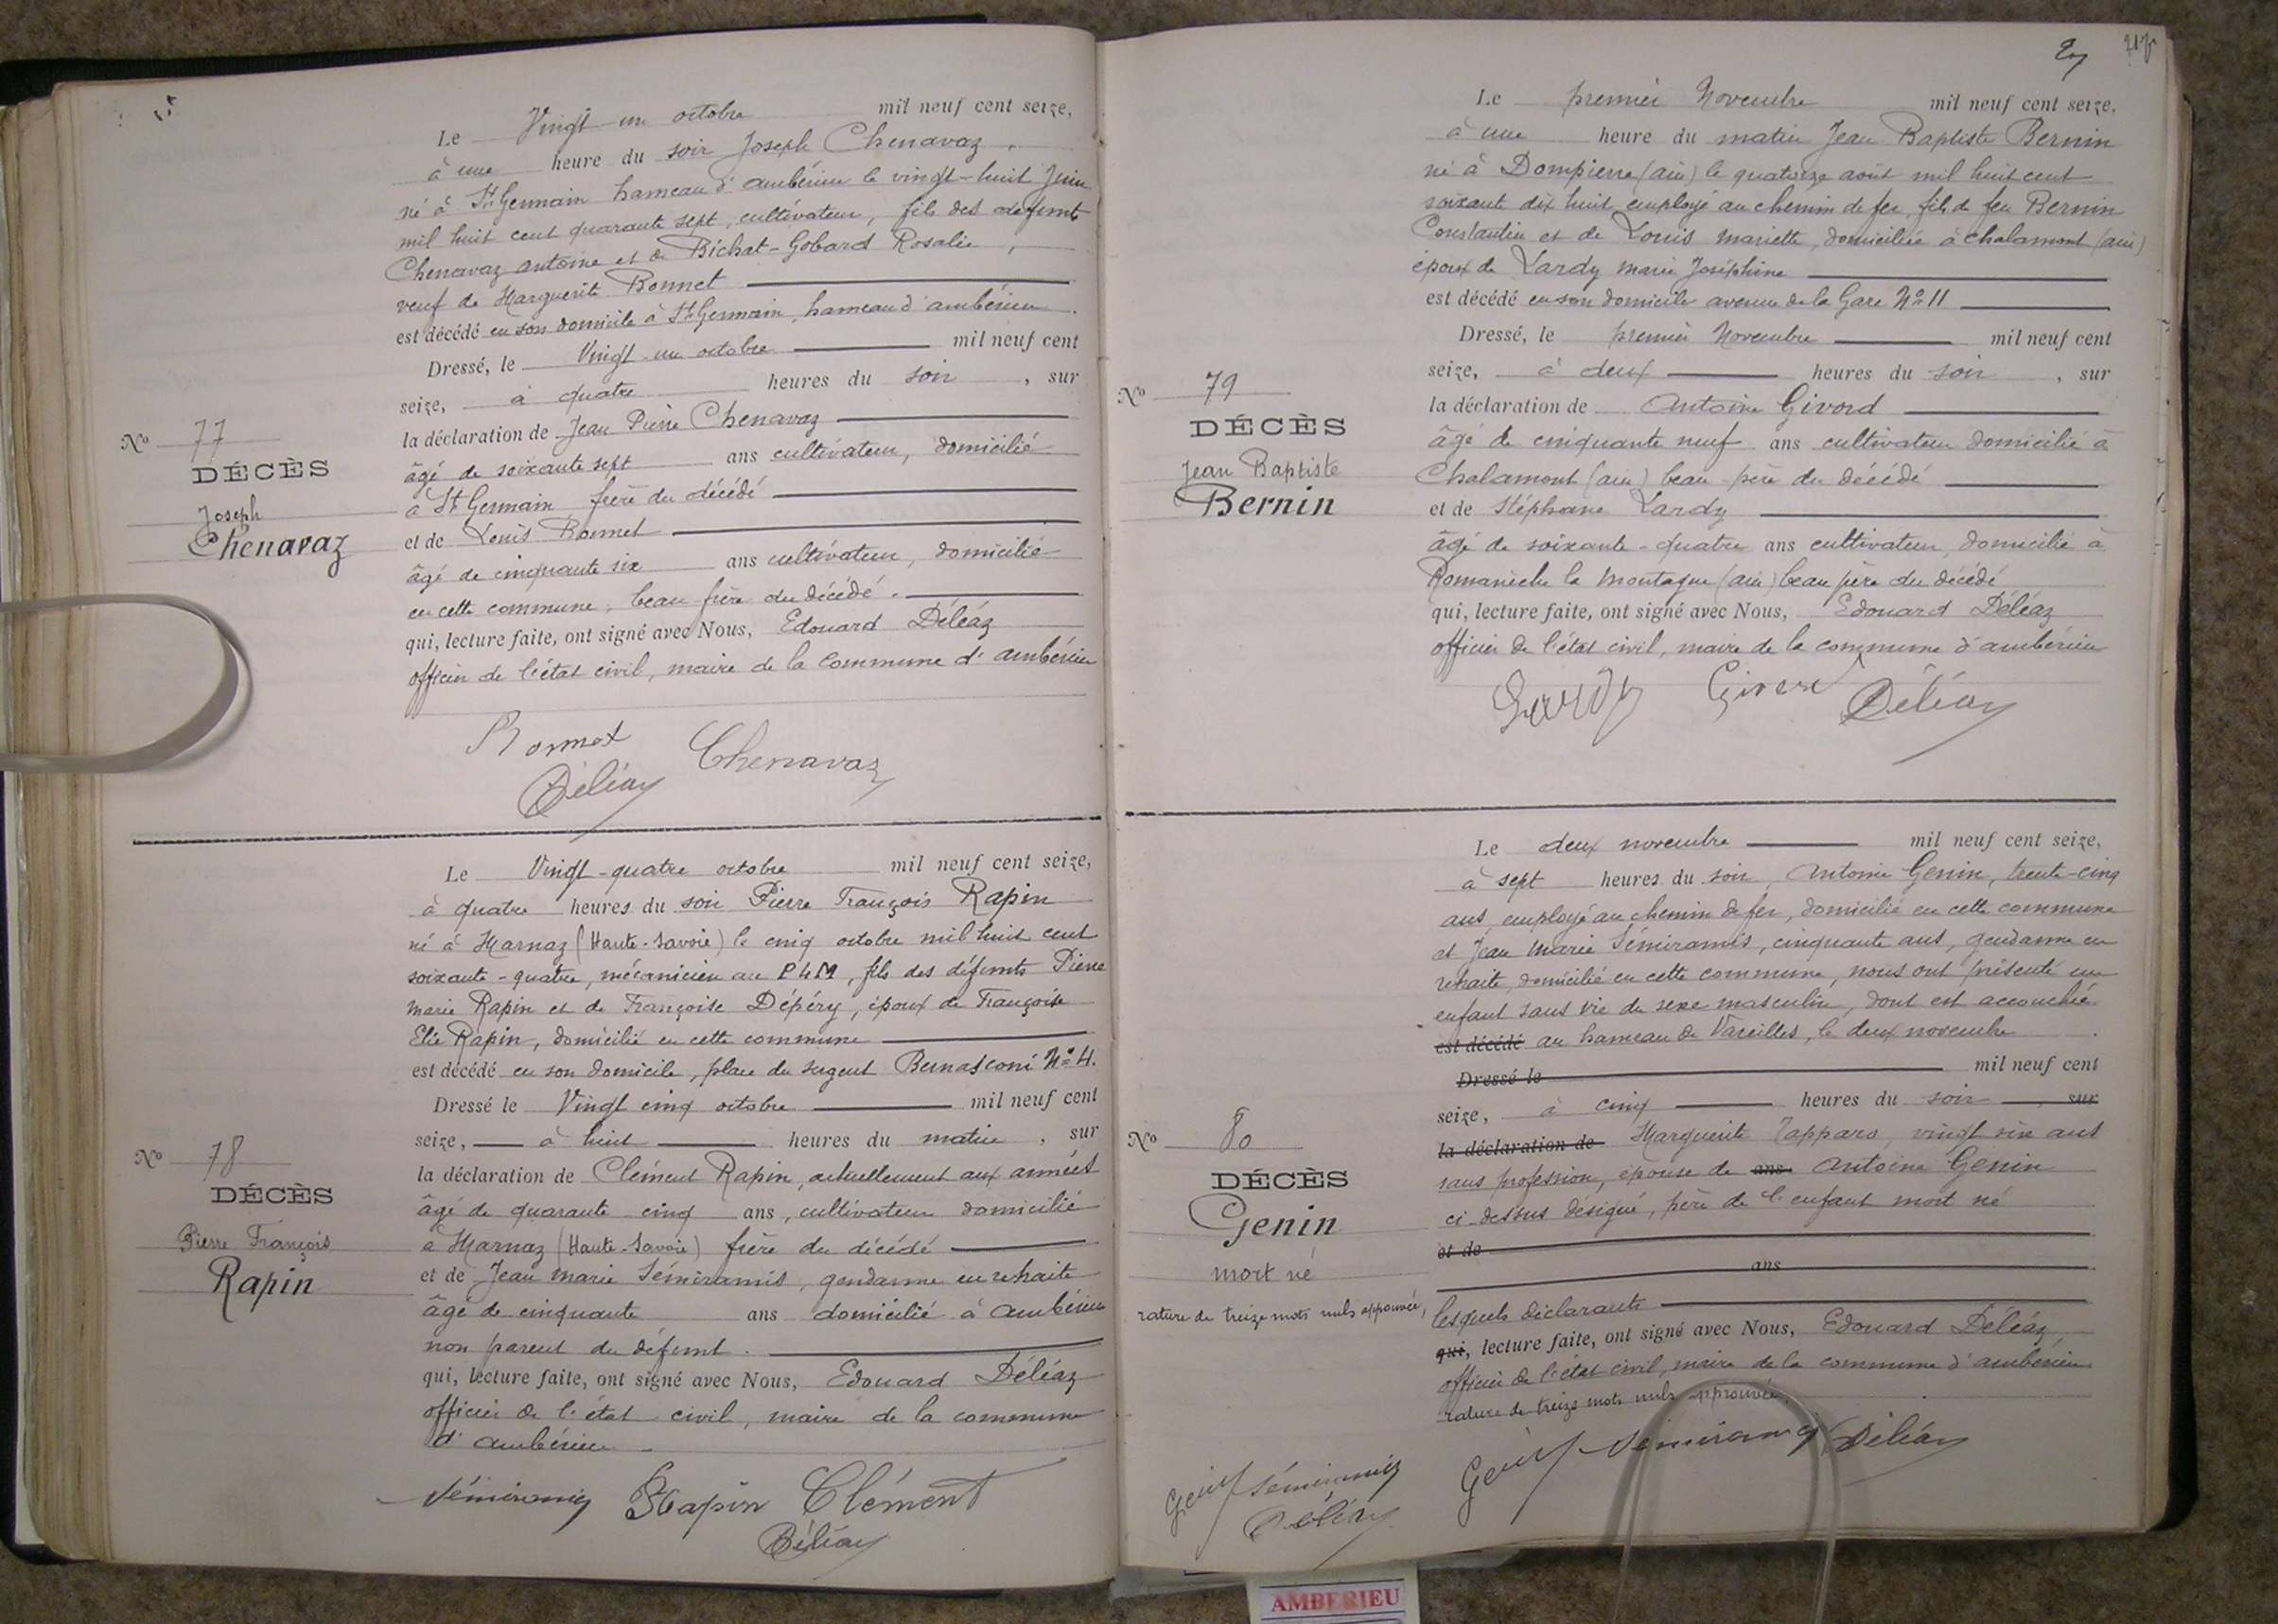 Le Vingt un octobre mil neuf cent seize,
à une heure du soir Joseph Chenavaz,
né à St Germain hameau d'ambérieu le vingt-huit Juin
mil huit cent quarante sept, cultivateur, fils des défunts
Chenavaz antoine et de Bichat-Gobard Rosalie,
veuf de Marguerite Bonnet
est décédé en son domicile à St Germain, hameau d'ambérieu.
Dressé, le Vingt-un octobre mil neuf cent
seize, à quatre heures du soir, sur
la déclaration de Jean Pierre Chenavaz
âgé de soixante sept ans cultivateur, domicilié
à St Germain frère du décédé
et de Louis Bonnet
âgé de cinquante six ans cultivateur, domicilié
en cette commune, beau-frère du décédé.
qui, lecture faite, ont signé avec Nous, Edouard Déléaz
officier de l'état civil, maire de la Commune d'ambérieu
No 77
DÉCÈS
Joseph
Chenavaz
Bonnet
Chenavaz
Déléaz
Le Vingt-quatre octobre mil neuf cent seize,
à quatre heures du soir Pierre François Rapin
né à Marnaz (Haute-Savoie) le cinq octobre mil huit cent
soixante-quatre, mécanicien au PLM, fils des défunts Pierre
marie Rapin et de Françoise Dépéry, époux de Françoise
Elie Rapin, domicilié en cette commune
est décédé en son domicile, place du sergent Bernasconi No 4.
Dressé le Vingt cinq octobre mil neuf cent
seize, à huit heures du matin, sur
la déclaration de Clément Rapin, actuellement aux armées
âgé de quarante-cinq ans, cultivateur domicilié
à Marnaz (Haute-Savoie) frère du décédé
et de Jean marie Sémiramis, gendarme en retraite
âgé de cinquante ans domicilié à ambérieu
non parent du défunt.
qui, lecture faite, ont signé avec Nous, Edouard Déléaz
officier de l'état civil, maire de la commune
d'ambérieu
No 78
DÉCÈS
Pierre François
Rapin
Sémiramis Rapin Clément
Déléaz
Le premier Novembre mil neuf cent seize,
à une heure du matin Jean Baptiste Bernin
né à Dompierre (ain) le quatorze août mil huit cent
soixante dix huit employé au chemin de fer, fils de feu Bernin
Constantin et de Louis mariette, domiciliée à chalamont (ain)
époux de Lardy marie Joséphine
est décédé en son domicile avenue de la Gare No 11
Dressé, le premier Novembre mil neuf cent
seize, à deux heures du soir, sur
la déclaration de Antoine Givord
âgé de cinquante neuf ans cultivateur domicilié à
Chalamont (ain) beau-père du décédé
et de Stéphane Lardy
âgé de soixante-quatre ans cultivateur, domicilié à
Romanèche la montagne (ain) beau père du décédé
qui, lecture faite, ont signé avec Nous, Edouard Déléaz
officier de l'état civil, maire de la commune d'ambérieu
No 79
DÉCÈS
Jean Baptiste
Bernin
Lardy Givord Déléaz
Le deux novembre mil neuf cent seize,
à sept heures du soir, Antoine Genin, trente-cinq
ans, employé au chemin de fer, domicilié en cette commune
et Jean Marie Sémiramis, cinquante ans, gendarme en
retraite, domicilié en cette commune, nous ont présenté un
enfant sans vie du sexe masculin, dont est accouchée
est décédé au hameau de Vareilles, le deux novembre
Dressé le mil neuf cent
seize, à cinq heures du soir sur
la déclaration de Marguerite Tapparo, vingt six ans
sans profession, épouse de ans Antoine Genin
ci-dessus désigné, père de l'enfant mort né
et de
ans
lesquels déclarants
qui, lecture faite, ont signé avec Nous, Edouard Déléaz,
officier de l'état civil, maire de la commune d'ambérieu
rature de treize mots nuls approuvée.
No 80
DÉCÈS
Genin
mort né
rature de treize mots nuls approuvée,
Genin Sémiramis Déléaz
Genin Sémiramis
Déléaz
AMBERIEU